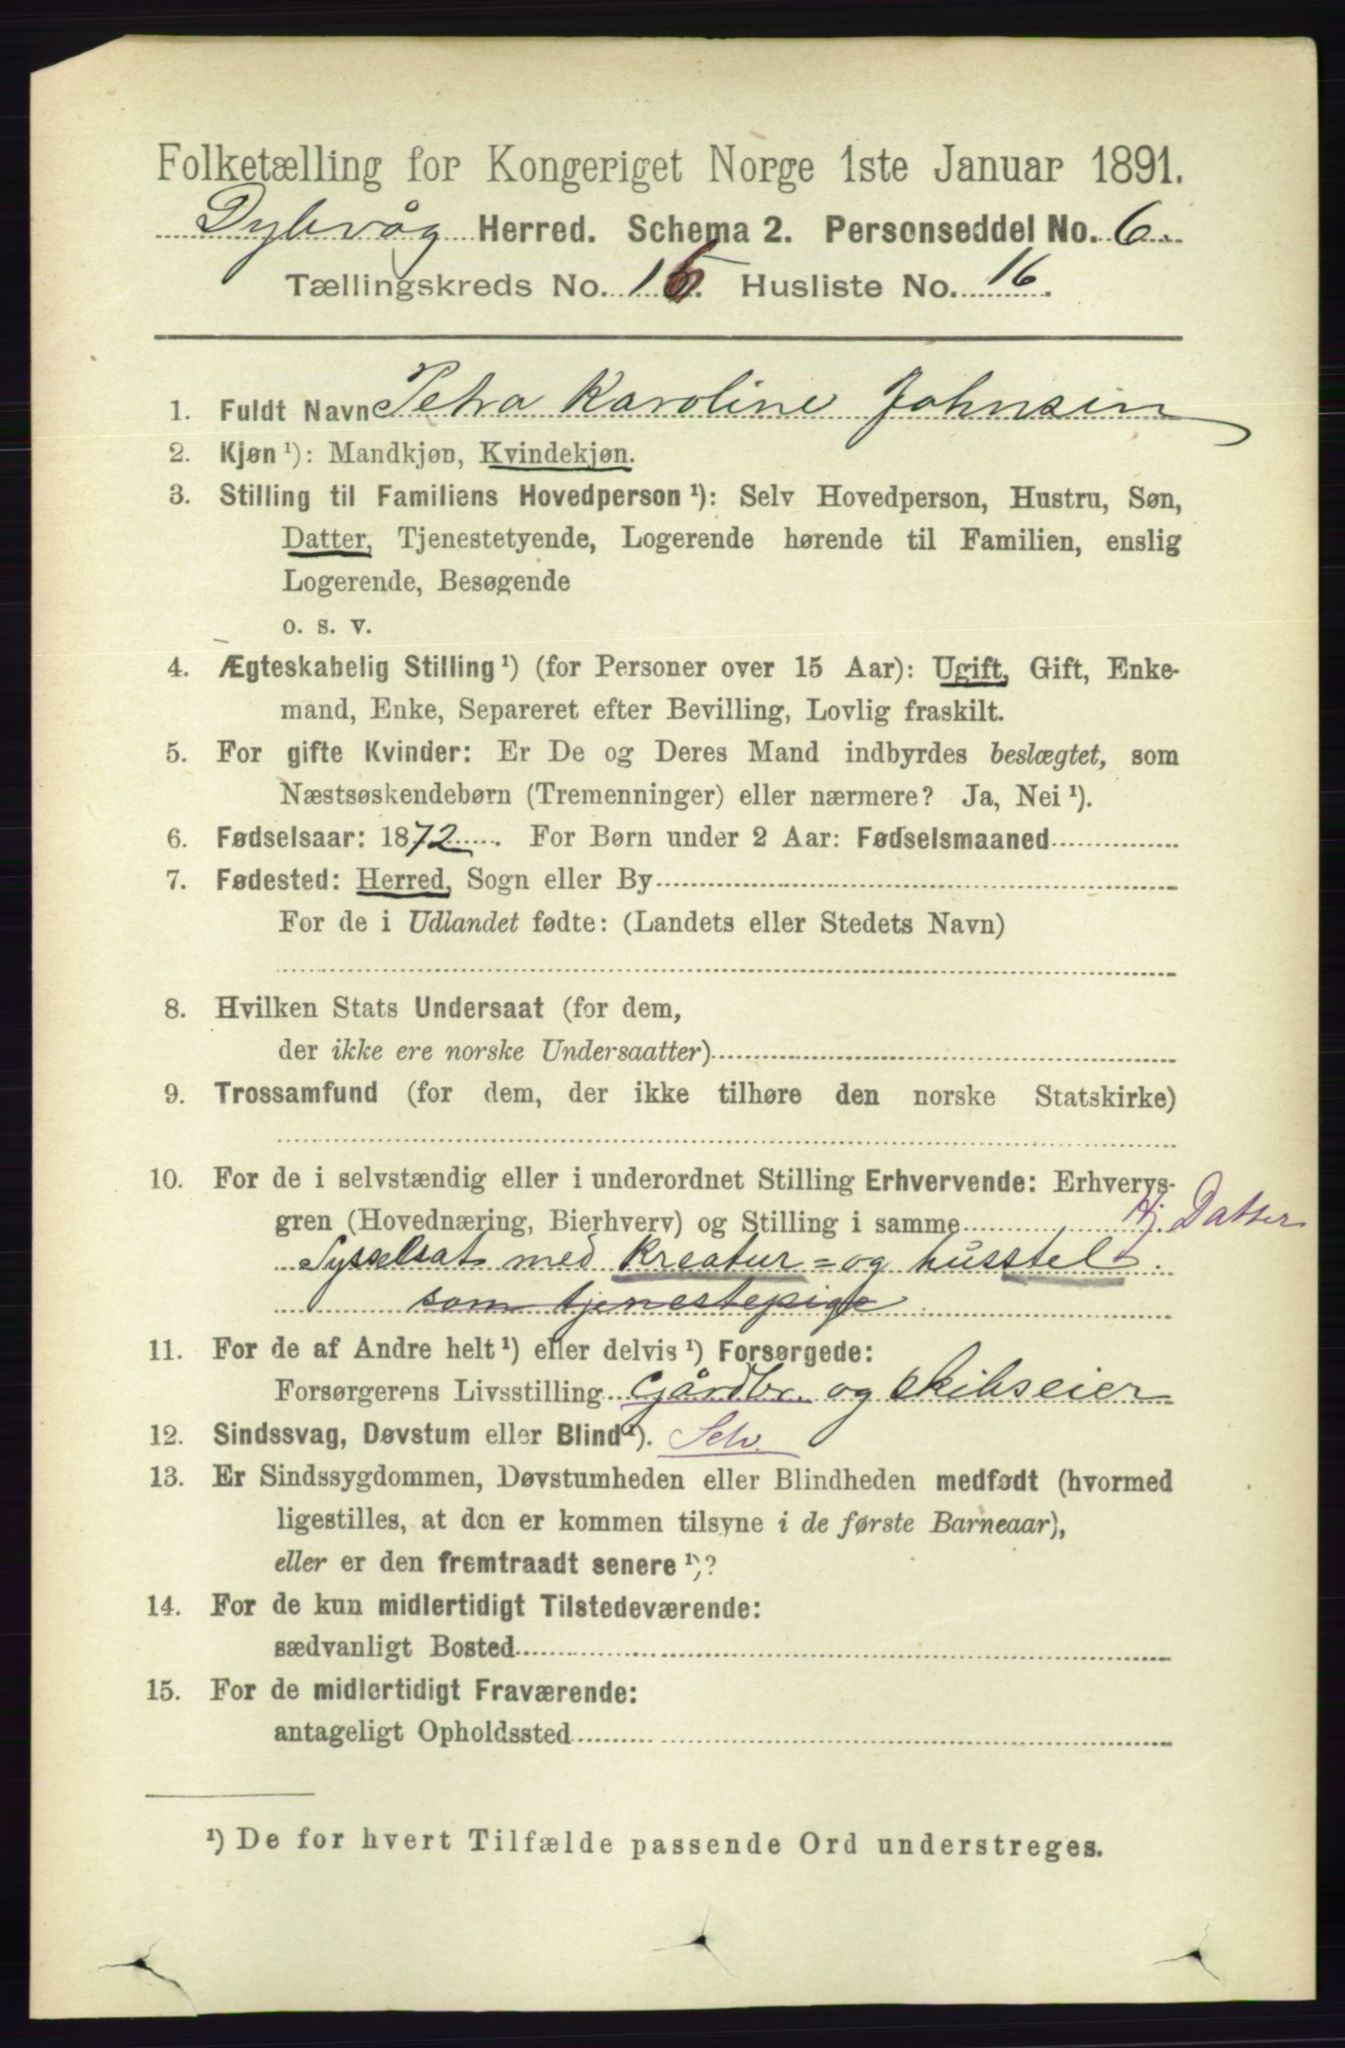 Folketælling for Kongeriget Norge 1ste Januar 1891.
Dybvåg Herred. Schema 2. Personseddel No. 6.
Tællingskreds No. 15. Husliste No. 16.
1. Fuldt Navn Petra Karoline Johnsen
2. Kjøn ¹): Mandkjøn, Kvindekjøn.
3. Stilling til Familiens Hovedperson ¹): Selv Hovedperson, Hustru, Søn,
Datter, Tjenestetyende, Logerende hørende til Familien, enslig
Logerende, Besøgende
o. s. v.
4. Ægteskabelig Stilling ¹) (for Personer over 15 Aar): Ugift, Gift, Enke-
mand, Enke, Separeret efter Bevilling, Lovlig fraskilt.
5. For gifte Kvinder: Er De og Deres Mand indbyrdes beslægtet, som
Næstsøskendebørn (Tremenninger) eller nærmere? Ja, Nei ¹).
6. Fødselsaar: 1872. For Børn under 2 Aar: Fødselsmaaned
7. Fødested: Herred, Sogn eller By
For de i Udlandet fødte: (Landets eller Stedets Navn)
8. Hvilken Stats Undersaat (for dem,
der ikke ere norske Undersaatter)
9. Trossamfund (for dem, der ikke tilhøre den norske Statskirke)
10. For de i selvstændig eller i underordnet Stilling Erhvervende: Erhvervs-
gren (Hovednæring, Bierhverv) og Stilling i samme Hj. Datter
Sysselsat med kreatur= og husstel
som tjenestepige
11. For de af Andre helt ¹) eller delvis ¹) Forsørgede:
Forsørgerens Livsstilling Gårdbr. og skibseier
12. Sindssvag, Døvstum eller Blind ¹). Selv.
13. Er Sindssygdommen, Døvstumheden eller Blindheden medfødt (hvormed
ligestilles, at den er kommen tilsyne i de første Barneaar),
eller er den fremtraadt senere ¹)?
14. For de kun midlertidigt Tilstedeværende:
sædvanligt Bosted
15. For de midlertidigt Fraværende:
antageligt Opholdssted
¹) De for hvert Tilfælde passende Ord understreges.